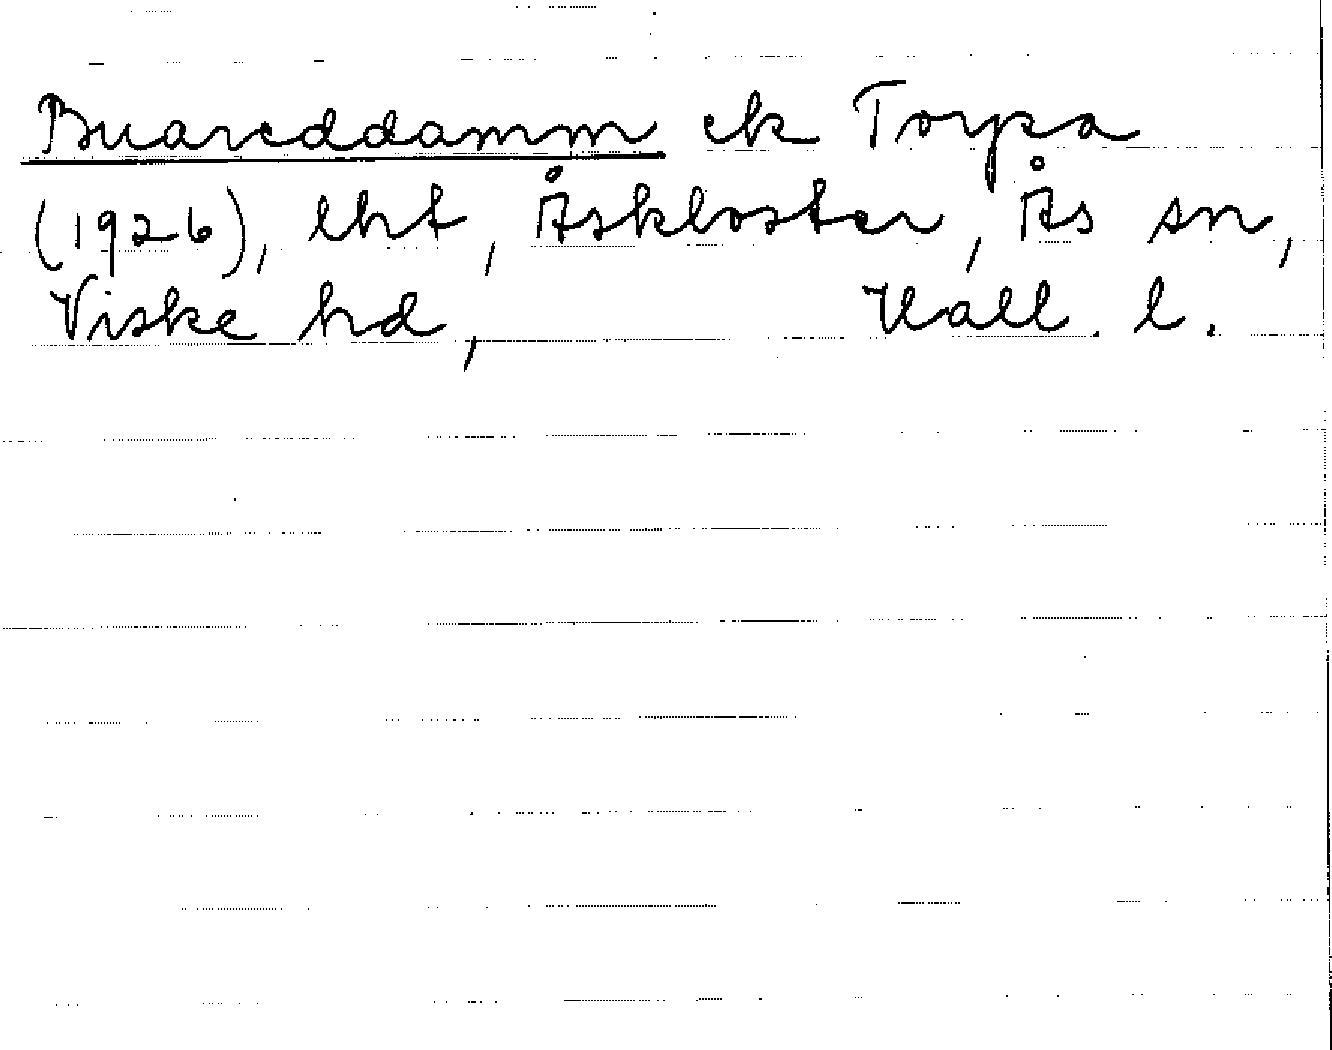 Buareddamm ek Torpa
(1926), lht, Åskloster, Ås sn,
Viske hd, Hall. l.